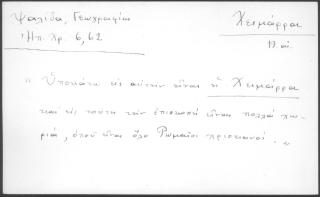 Ψαλίδα, Γεωγραφία
Ἠπ. Χρ. 6, 62
Χειμάρρα
19 αἰ.
" Ὑποκάτω εἰς αὐτὴν εἶναι ἡ Χειμάρρα
καὶ εἰς τούτη τὴν ἐπισκοπὴ εἶναι πολλὰ χω-
ριά, ὁποῦ εἶναι ὅλο Ρωμαῖοι χριστιανοί. "